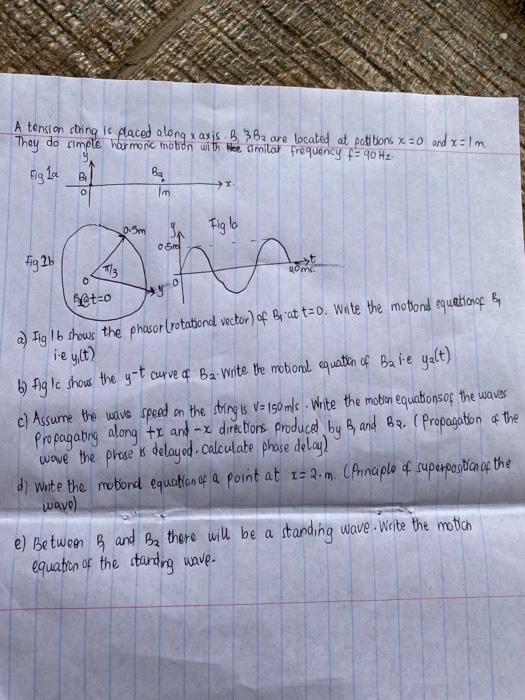 A tension string is placed along x axis. B₁ & B₂ are located at positions x=0 and x=1m.
They do simple harmonic motion with similar frequency f=90Hz.
Fig 1a
y
B₁
B₂
x
0
1m
0.5m
y
Fig 1b
0.5m
Fig 2b
π/3
t
20ms
0
y
0
B₁@t=0
a) Fig 1b shows the phasor (rotational vector) of B₁ at t=0. Write the motiond equation of B₁
i.e y₁(t)
b) Fig 1c shows the y-t curve of B₂. Write the motional equation of B₂ i.e y₂(t)
c) Assume the wave speed on the string is V=150m/s. Write the motion equations of the waves
propagating along +x and -x directions produced by B₁ and B₂. (Propagation of the
wave the phase is delayed. Calculate phase delay)
d) Write the motiond equation of a point at x=2.m. (Principle of superposition of the
wave)
e) Between B₁ and B₂ there will be a standing wave. Write the motion
equation of the standing wave.